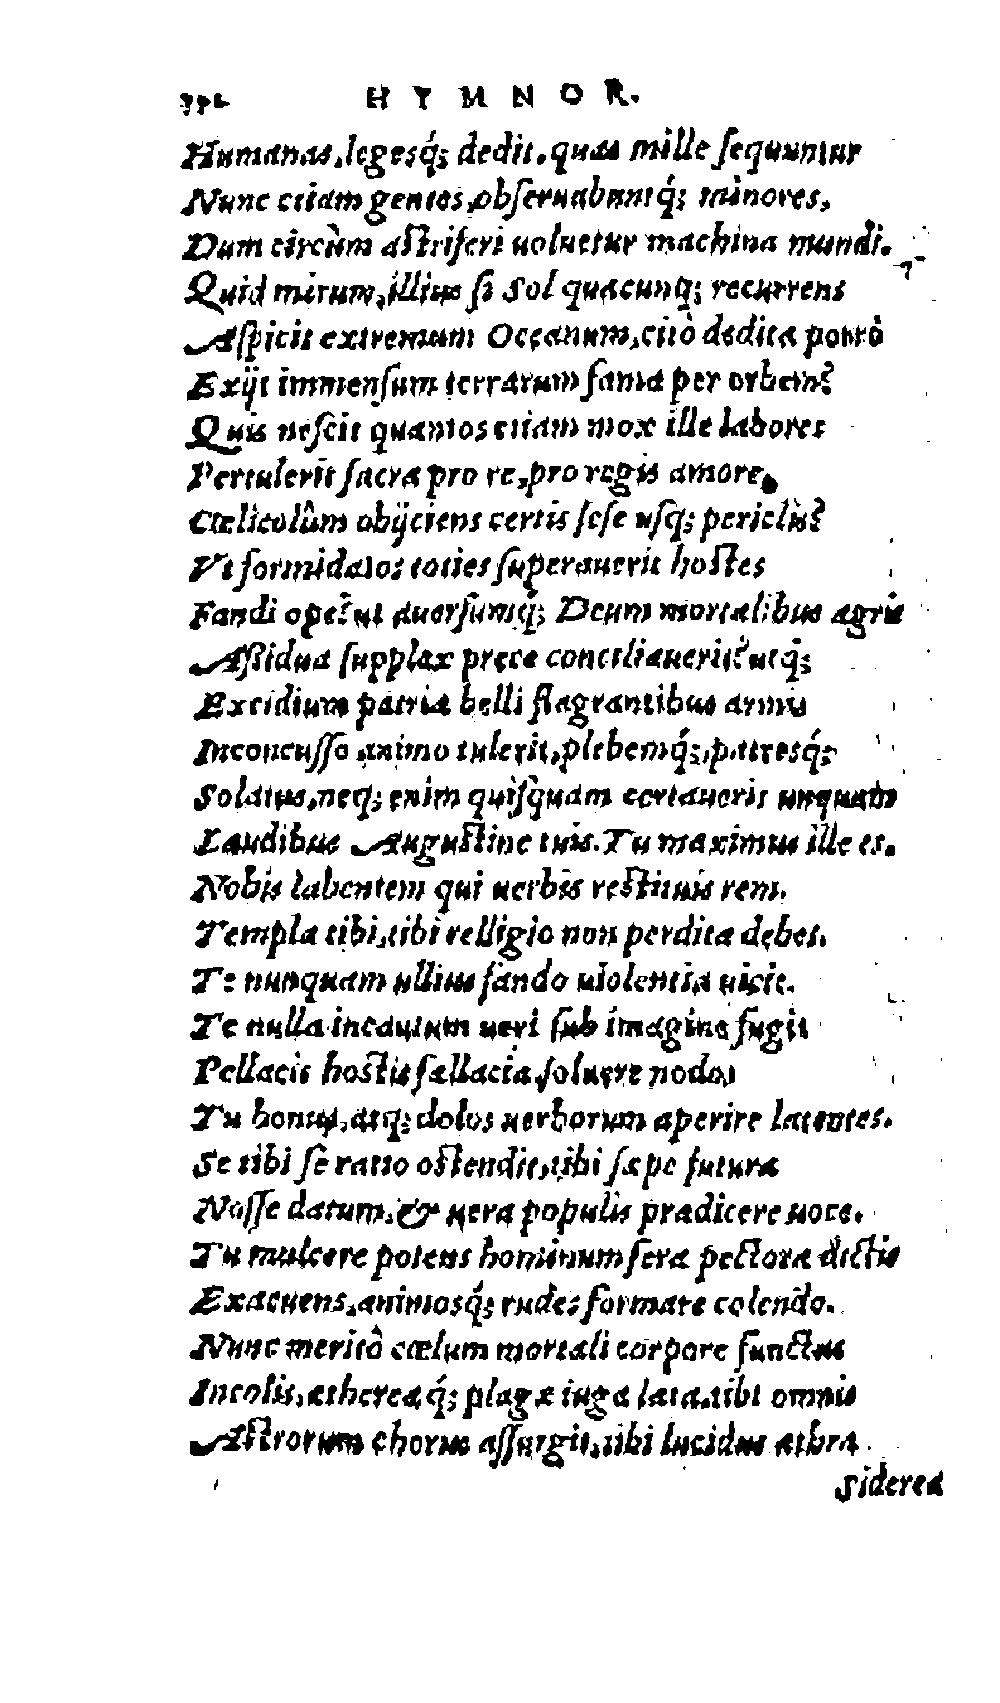 HYMNOR.
Humanas, legesq́; dedit. quas mille sequuntur
Nunc etiam gentes, obseruabuntq́; minores,
Dum circùm astriferi uoluetur machina mundi.
Quid mirum, illius si Sol quacunq; recurrens
Aspicit extremum Oceanum, citò dedita porrò
Exijt immensum terrarum fama per orbem?
Quis nescit quantos etiam mox ille labores
Pertulerit sacra pro re, pro regis amore,
Cœlicolûm obijciens certis sese usq; periclis?
Vt formidatos toties superauerit hostes
Fandi ope? ut auersumq́; Deum mortalibus agris
Aßidua supplax prece conciliauerit? utq́;
Excidium patriæ belli flagrantibus armis
Inconcusso animo tulerit, plebemq́;, patresq́;
Solatus, neq; enim quisquam certauerit unquam
Laudibus Augustine tuis. Tu maximus ille es.
Nobis labentem qui uerbis restituis rem.
Templa tibi, tibi relligio non perdita debet.
Te nunquam ullius fando uiolentia uicit.
Te nulla incautum ueri sub imagine fugit
Pellacis hostis fallacia, soluere nodos
Tu bonus, atq; dolos uerborum aperire latentes.
Se tibi se ratio ostendit, tibi sæpe futura
Nosse datum, & uera populis prædicere uoce.
Tu mulcere potens hominum fera pectora dictis
Exacuens, animosq́; rudes formare colendo.
Nunc meritò cœlum mortali corpore functus
Incolis, æthereæq́; plagæ iuga lata, tibi omnis
Astrorum chorus assurgit, tibi lucidus æthra
Siderea